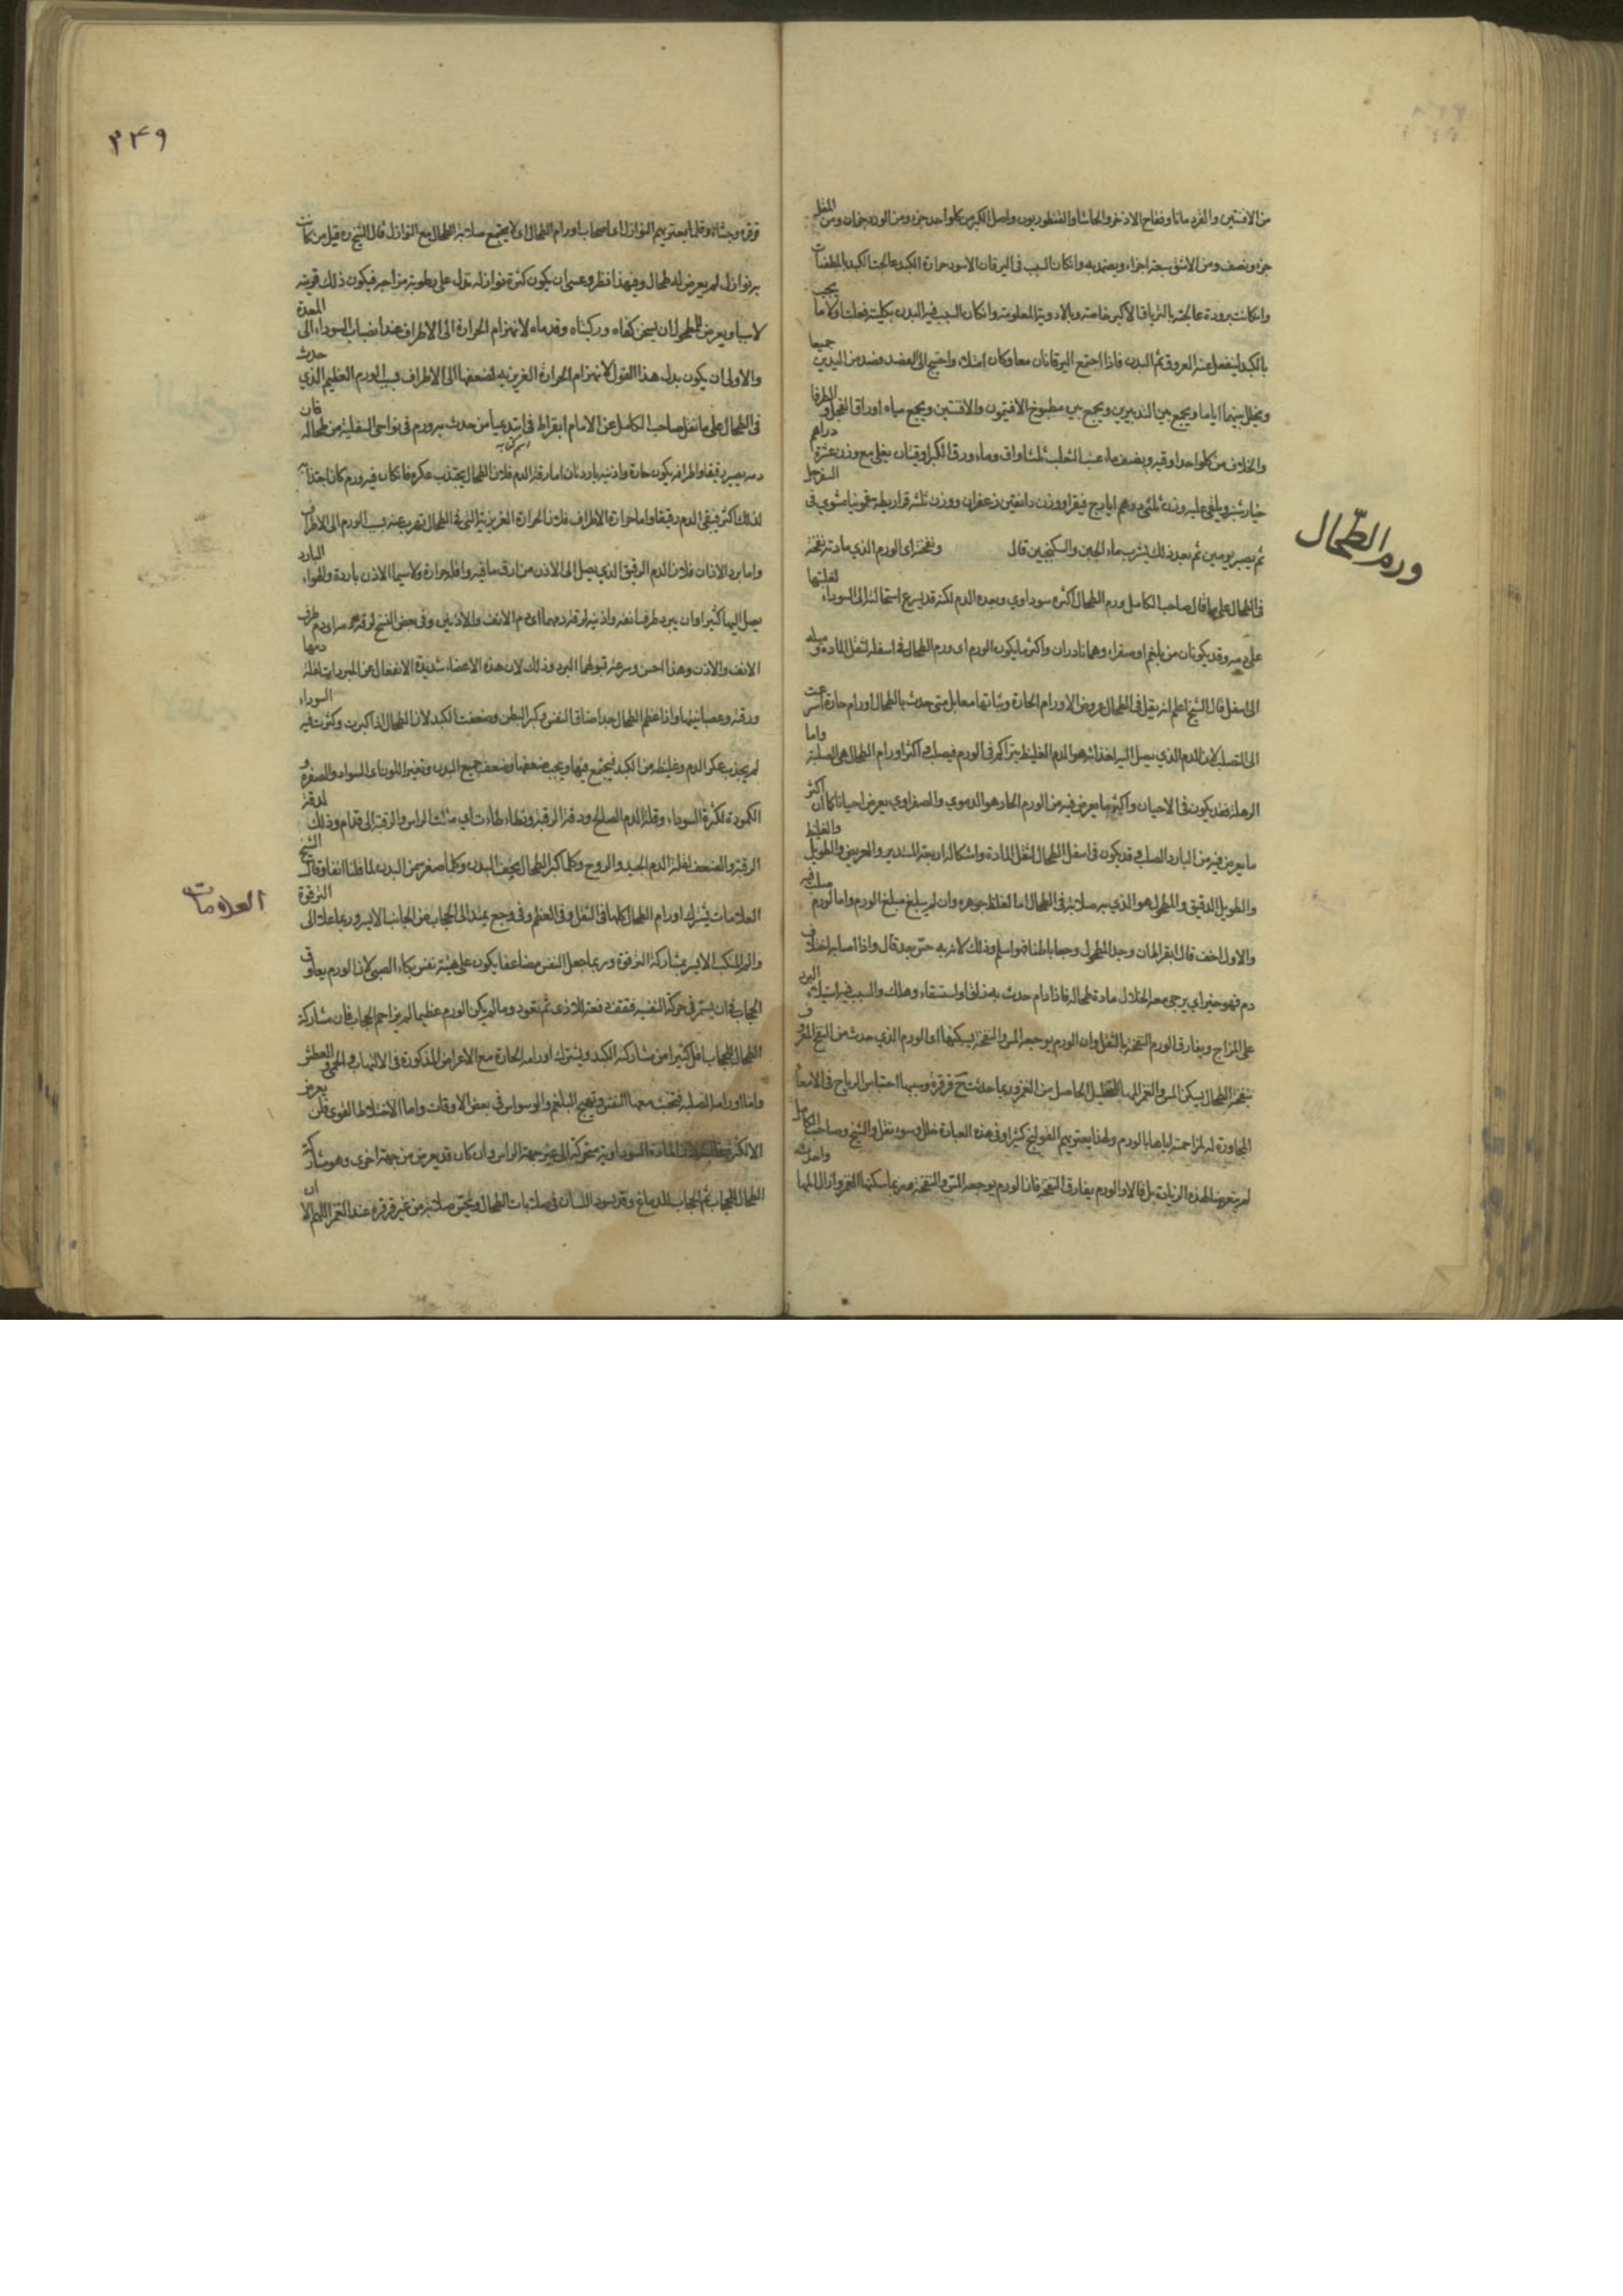 من الافسنتين والقردمانا وفقاح الاذخر والحاشا والقنطوريون واصل الكبر من كل واحد جزء ومن الورد جزءان ومن المقل
جزء ونصف ومن الاشق سبعة اجزاء ويضمد به وان كان السبب فى اليرقان الاسود حرارة الكبد عالجت الكبد بالمطفئات
وان كانت برودة عالجته بالترياق الاكبر خاصته وبالادوية المعلومة وان كان السبب فيه البدن بكليته فعلت اولا ما يجب
بالكبد لينفصل عنه العروق ثم البدن فاذا اجتمع اليرقانان معا وكان امتلاء واحتيج الى الفصد فصد من اليدين جميعا
ويخلل بينهما اياما ويجمع بين التدبيرين ويجمع بين مطبوخ الافتيمون والافسنتين ويجمع مياه اوراق الفجل والطرفا
والخلاف من كل واحد اوقيه ونصف ماء عنب الثعلب ثلث اواق وماء ورق الكبر اوقيتان يغلى مع وزن عشرة دراهم
خيارشنبر ويلقى عليه وزن ثلثى درهم ايارج فيقرا ووزن دانقين زعفران ووزن ثلثه قراريط سقمونيا مشوي فى السفرجل
ثم يصبر يومين ثم بعد ذلك يشرب ماء الجبن والسكنجبين قال ونفخته اى الورم الذي مادته نفخة
ورم الطحال
فى الطحال على ما قال صاحب الكامل ورم الطحال اكثره سوداوي وبعده الدم لكنه قد يسرع استحالته الى السوداء لغلبتها
على دمه وقد يكونان من بلغم او صفراء وهما نادران واكثر ما يكون الورم اى ورم الطحال فى اسفله لثقل المادة وميله
الى اسفل قال الشيخ اعلم انه يقل فى الطحال عروض الاورام الحارة وثباتها معا بل متى حدث بالطحال اورام حارة اسرعت
الى التصلب لان الدم الذي يصل اليه لغذائه هو الدم الغليظ يتراكم فى الورم فيصلب واكثر اورام الطحال هى الصلبة واما
الرهلة فقد يكون فى الاحيان واكثر ما يعرض فيه من الورم الحار هو الدموي والصفراوي يعرض احيانا كما ان اكثر
ما يعرض فيه من البارد الصلب وقد يكون فى اسفل الطحال لثقل المادة واشكاله اربعة المستدير والعريض والطويل والغليظ
والطويل الدقيق والمطحول هو الذي به صلابة فى الطحال اما لغلظ جوهره وان لم يبلغ مبلغ الورم واما لورم صلب فيه
والاول اخف قال ابقراط ان وجد المطحول وجعا باطنا فهو اسلم وذلك لان به حس بعد قال واذا اصابه اختلاف
دم فهو خير اي يرجى معه انحلال مادة طحاله فاذا دام حدث به زلق او استسقاء وهلك والسبب فيه استيلاء البرد
على المزاج ويفارق الورم النفخة بالثقل وان الورم يوجعه المس والنفخة يسكنها او الورم الذي حدث من النفخ المفرق
نفخة الطحال يسكن المس والغمز المها للتحليل الحاصل من الغمز وربما حدث قرقرة وسببها احتباس الرياح فى الامعاء
المجاورة له لمزاحمته اياها بالورم ولهذا يعتريهم القولنج كثيرا وفى هذه العبارة خلل وسوء نقل والشيخ وصاحب الكامل
لم يتعرضا لهذه الزيادة بل قالا والورم يفارق النفخة فان الورم يوجعه المس والنفخة ربما سكنها الغمز وازال المها واحدث
٣٤٩
قرقرة وجشاء وقلما يعتريهم النوازل اى اصحاب اورام الطحال اى لا يجتمع صلابة الطحال مع النوازل قال الشيخ ره قيل من كانت
به نوازل لم يعرض له طحال وفيه هذا نظر وعسى ان يكون كثرة نوازله تدل على رطوبة مزاجه فيكون ذلك قرينه
لاسبا ويعرض للمطحول ان يسخن كفاه وركبتاه وقدماه لانهزام الحرارة الى الاطراف عند انصباب السوداء الى المعدة
والاولى ان يكون بدل هذا القول لانهزام الحرارة الغريزيه لضعفها الى الاطراف بسبب الورم العظيم الذي حدث
فى الطحال على ما نقل صاحب الكامل عن الامام ابقراط فى ابتدعيا من حدث به ورم فى نواحى السفلية من طحاله فان
اسم كتابه
دمه يصير رقيقا واطرافه يكون حارة واذنيه باردتان اما رقة الدم فلان الطحال يجتذب عكره فان كان فيه ورم كان اجتذابه
لذلك اكثر فيبقى الدم رقيقا واما حرارة الاطراف فلان الحرارة الغريزية التى فى الطحال تهرب عنه بسبب الورم الى الاطراف
واما برد الاذان فلان الدم الرقيق الذي يصل الى الاذن من ارق ما فيه واقله حرارة ولاسيما الاذن باردة والهواء البارد
يصل اليها كثيرا وان يبرد طرف انفه واذنيه لرقة دمهما اى دم الانف والاذنين وفى بعض النسخ لرقة دمه سراى دم طرف
الانف والاذن وهذا احسن وسرعة قبولها البرد وذلك لان هذه الاعضاء شديدة الانفعال عن المبردات لقلة دمها
ورقته وعصبانيتها واذا عظم الطحال جدا ضاق النفس وكبر البطن وضعفت الكبد لان الطحال اذا كبرت وكثرت فيه السوداء
لم يجذب عكر الدم وغليظه من الكبد فيجتمع فيها ويجب ضعفها وضعف جميع البدن وتغير اللون الى السواد والصفرة و
الكمودة لكثرة السوداء وقلة الدم الصالح ودقة الرقبة وتطاءطاءت اي مثلت الراس والرقبة الى قدام وذلك لدقة
الرقبة والضعف لقلة الدم الجيد والروح وكلما كبر الطحال نحف البدن وكلما صغر سمن البدن لما قلنا انفا وقال الشيخ
العلامات
العلامات يشترك اورام الطحال كلها فى الثقل وفى العظم وفى وجع يمتد الى الحجاب من الجانب الايسر وربما علا الى الترقوة
والم المنكب الايسر بمشاركة الترقوة وربما جعل النفس مضاعفا يكون على هيئة نفس بكاء الصبى لان الورم يعاوق
الحجاب فى ان يستمر فى حركة النفسيه فتقف دفعة للاذى ثم تعود وما لم يكن الورم عظيما لم يزاحم الحجاب فان مشاركة
الطحال للحجاب اقل كثيرا من مشاركة الكبد ويشترك اورامه الحارة مع الاعراض المذكورة فى الالتهاب والحمى والعطش
واما اورامه الصلبة فتخبث معها النفس وتهيج البلغم والوسواس فى بعض الاوقات واما الاختلاط القوى فلن يعرض
الاكثر لان المادة السوداوية متحركة الى غير جهة الراس وان كان قد يعرض من جهة اخرى وهو مشاركة
الطحال للحجاب ثم الحجاب للدماغ وقد يسود اللسان فى صلابات الطحال ويحس صلابته من غير قرقرة عند الغمز اللهم الا ان